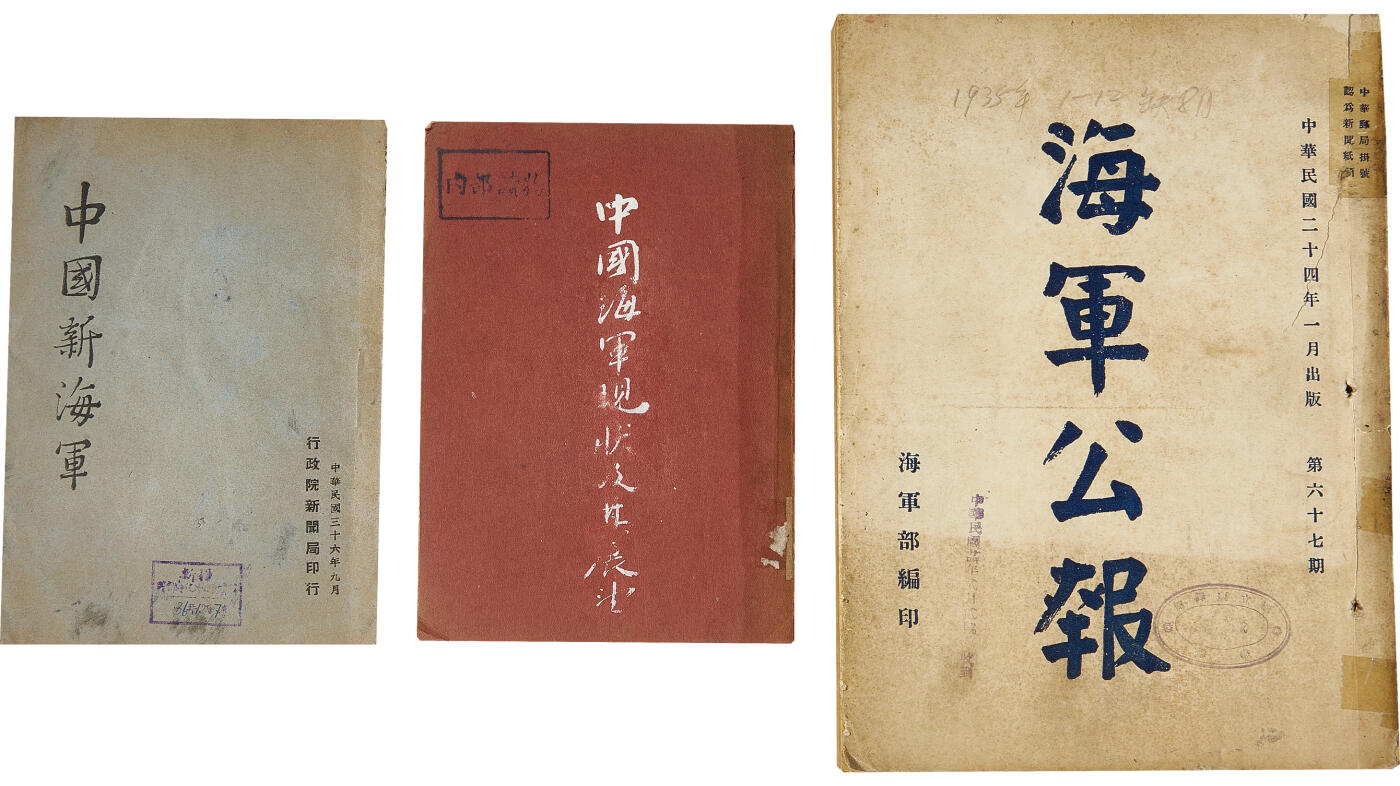 中國新海軍
中華民國三十六年九月
行政院新聞局印行
新疆
內部讀物
中國海軍現狀及其展望
1935年 1-12 缺8月
中華郵局掛號
認為新聞紙類
中華民國二十四年一月出版 第六十七期
海軍公報
海軍部編印
中華民國
收到